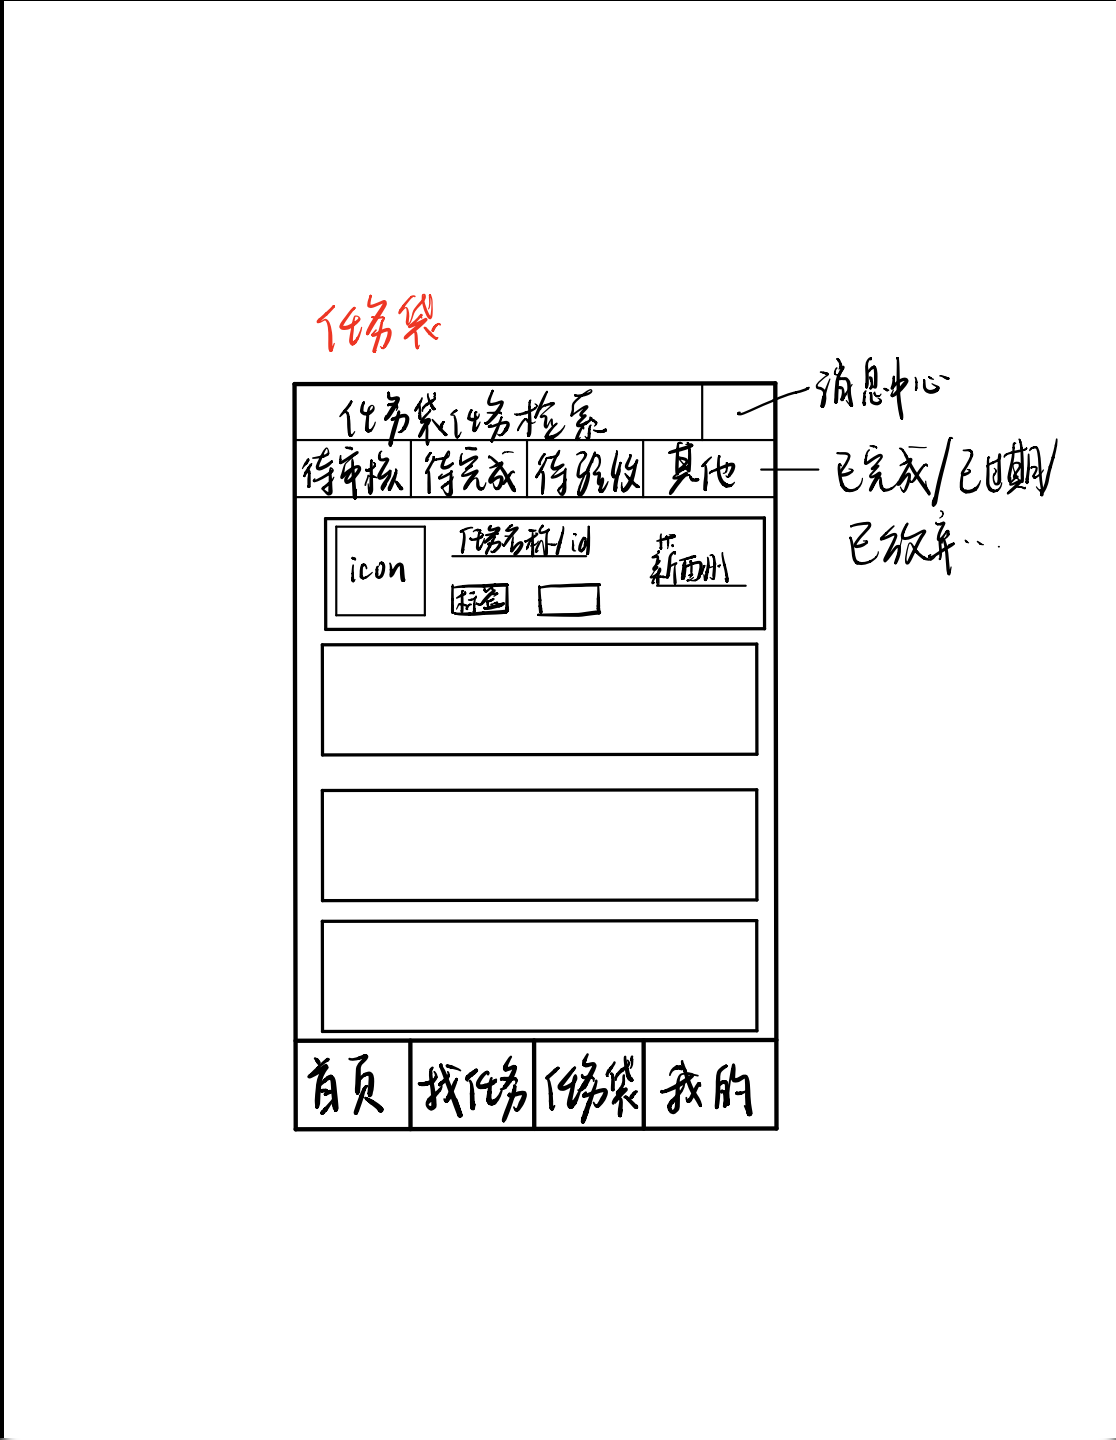 任务袋
任务袋任务检索
消息中心
待审核 待完成 待验收 其他
已完成/已过期/
已放弃...
icon
任务名称/id
薪酬
标签
首页 找任务 任务袋 我的